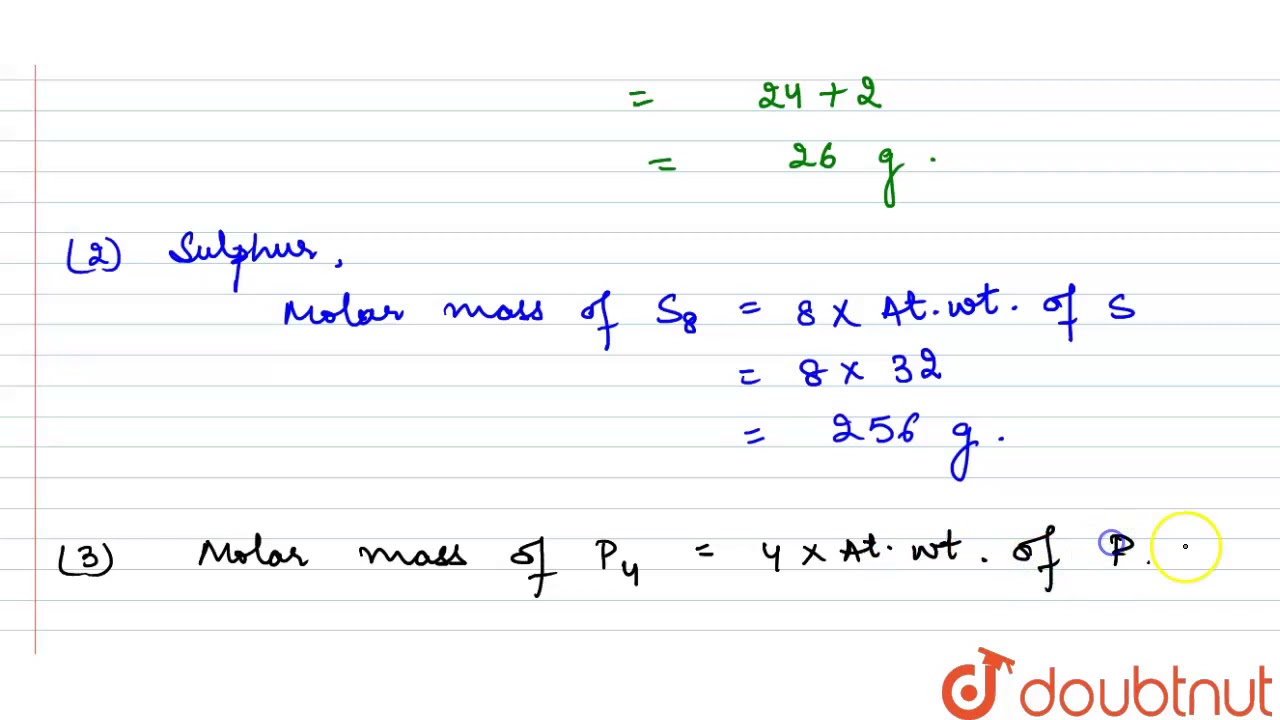 = 24 + 2
= 26 g.
(2) Sulphur,
Molar mass of S₈ = 8 × At. wt. of S
= 8 × 32
= 256 g.
(3) Molar mass of P₄ = 4 × At. wt. of P.
doubtnut